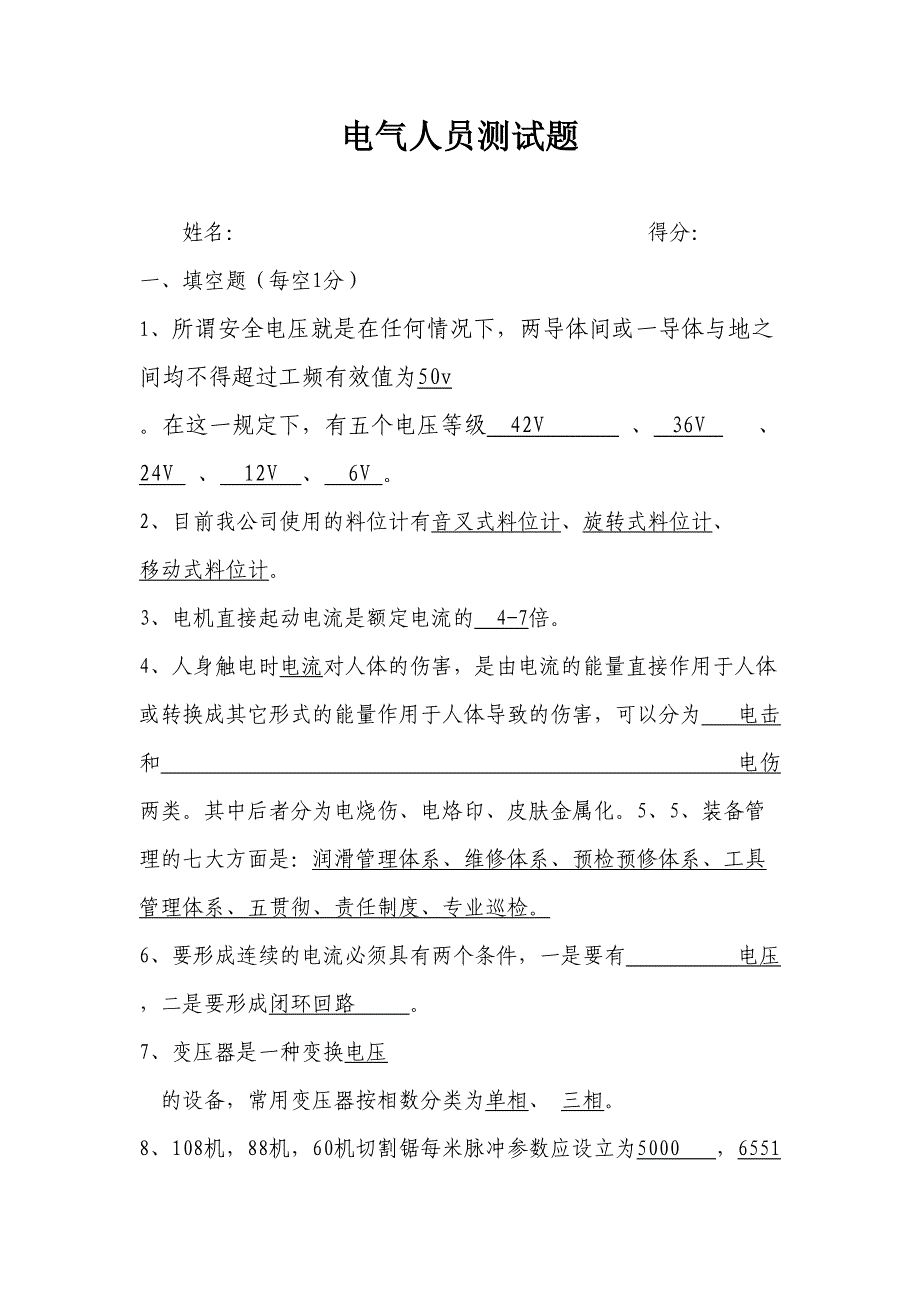 电气人员测试题
姓名: 得分:
一、填空题（每空1分）
1、所谓安全电压就是在任何情况下，两导体间或一导体与地之
间均不得超过工频有效值为50v
。在这一规定下，有五个电压等级 42V 、 36V 、
24V 、 12V 、 6V 。
2、目前我公司使用的料位计有音叉式料位计、旋转式料位计、
移动式料位计。
3、电机直接起动电流是额定电流的 4-7倍。
4、人身触电时电流对人体的伤害，是由电流的能量直接作用于人体
或转换成其它形式的能量作用于人体导致的伤害，可以分为 电击
和 电伤
两类。其中后者分为电烧伤、电烙印、皮肤金属化。5、5、装备管
理的七大方面是：润滑管理体系、维修体系、预检预修体系、工具
管理体系、五贯彻、责任制度、专业巡检。
6、要形成连续的电流必须具有两个条件，一是要有 电压
，二是要形成闭环回路 。
7、变压器是一种变换电压
的设备，常用变压器按相数分类为单相、 三相。
8、108机，88机，60机切割锯每米脉冲参数应设立为5000 ，6551